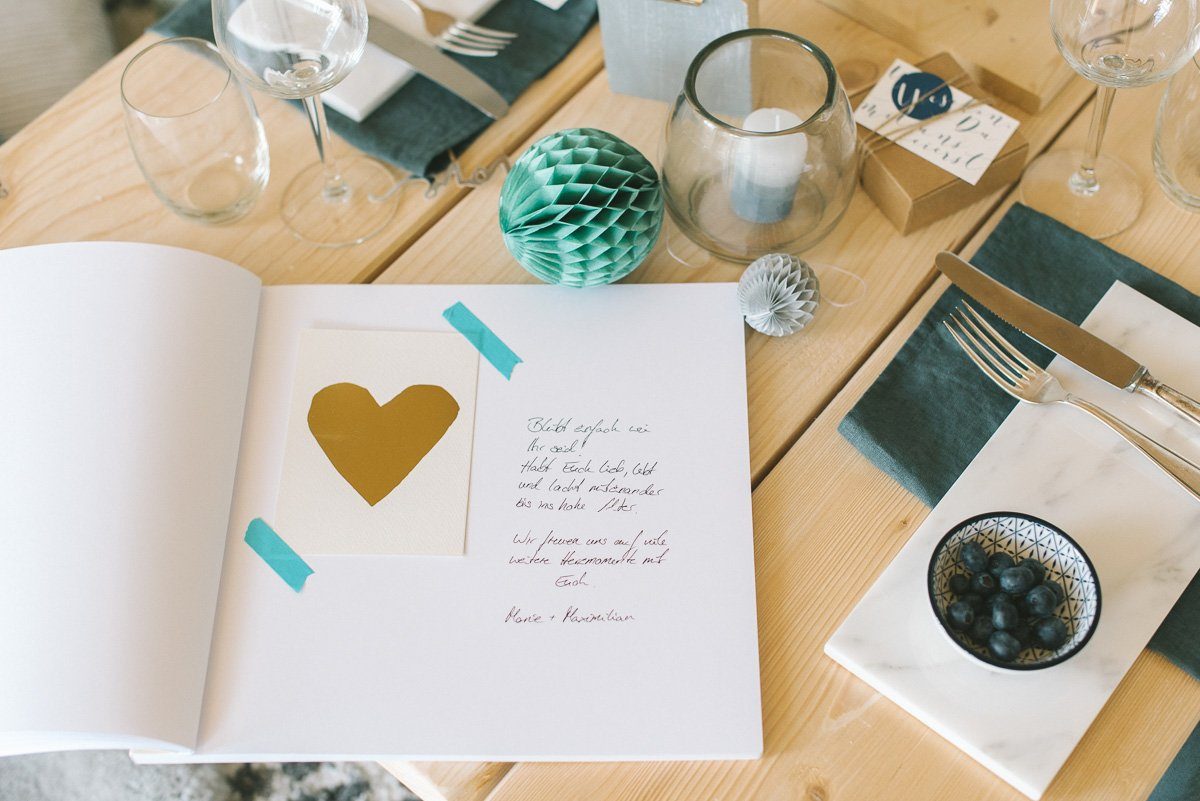 Yes
Da
Bleibt einfach wie
Ihr seid!
Habt Euch lieb, lebt
und lacht miteinander
bis ins hohe Alter.
Wir freuen uns auf viele
weitere Herzmomente mit
Euch.
Marie + Maximilian